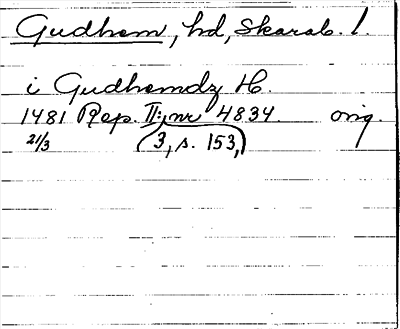 Gudhem, hd, Skarab. l.
i Gudhemdz H.
1481 Rep. II:, nr 4834 orig.
21/3 (3, s. 153,)